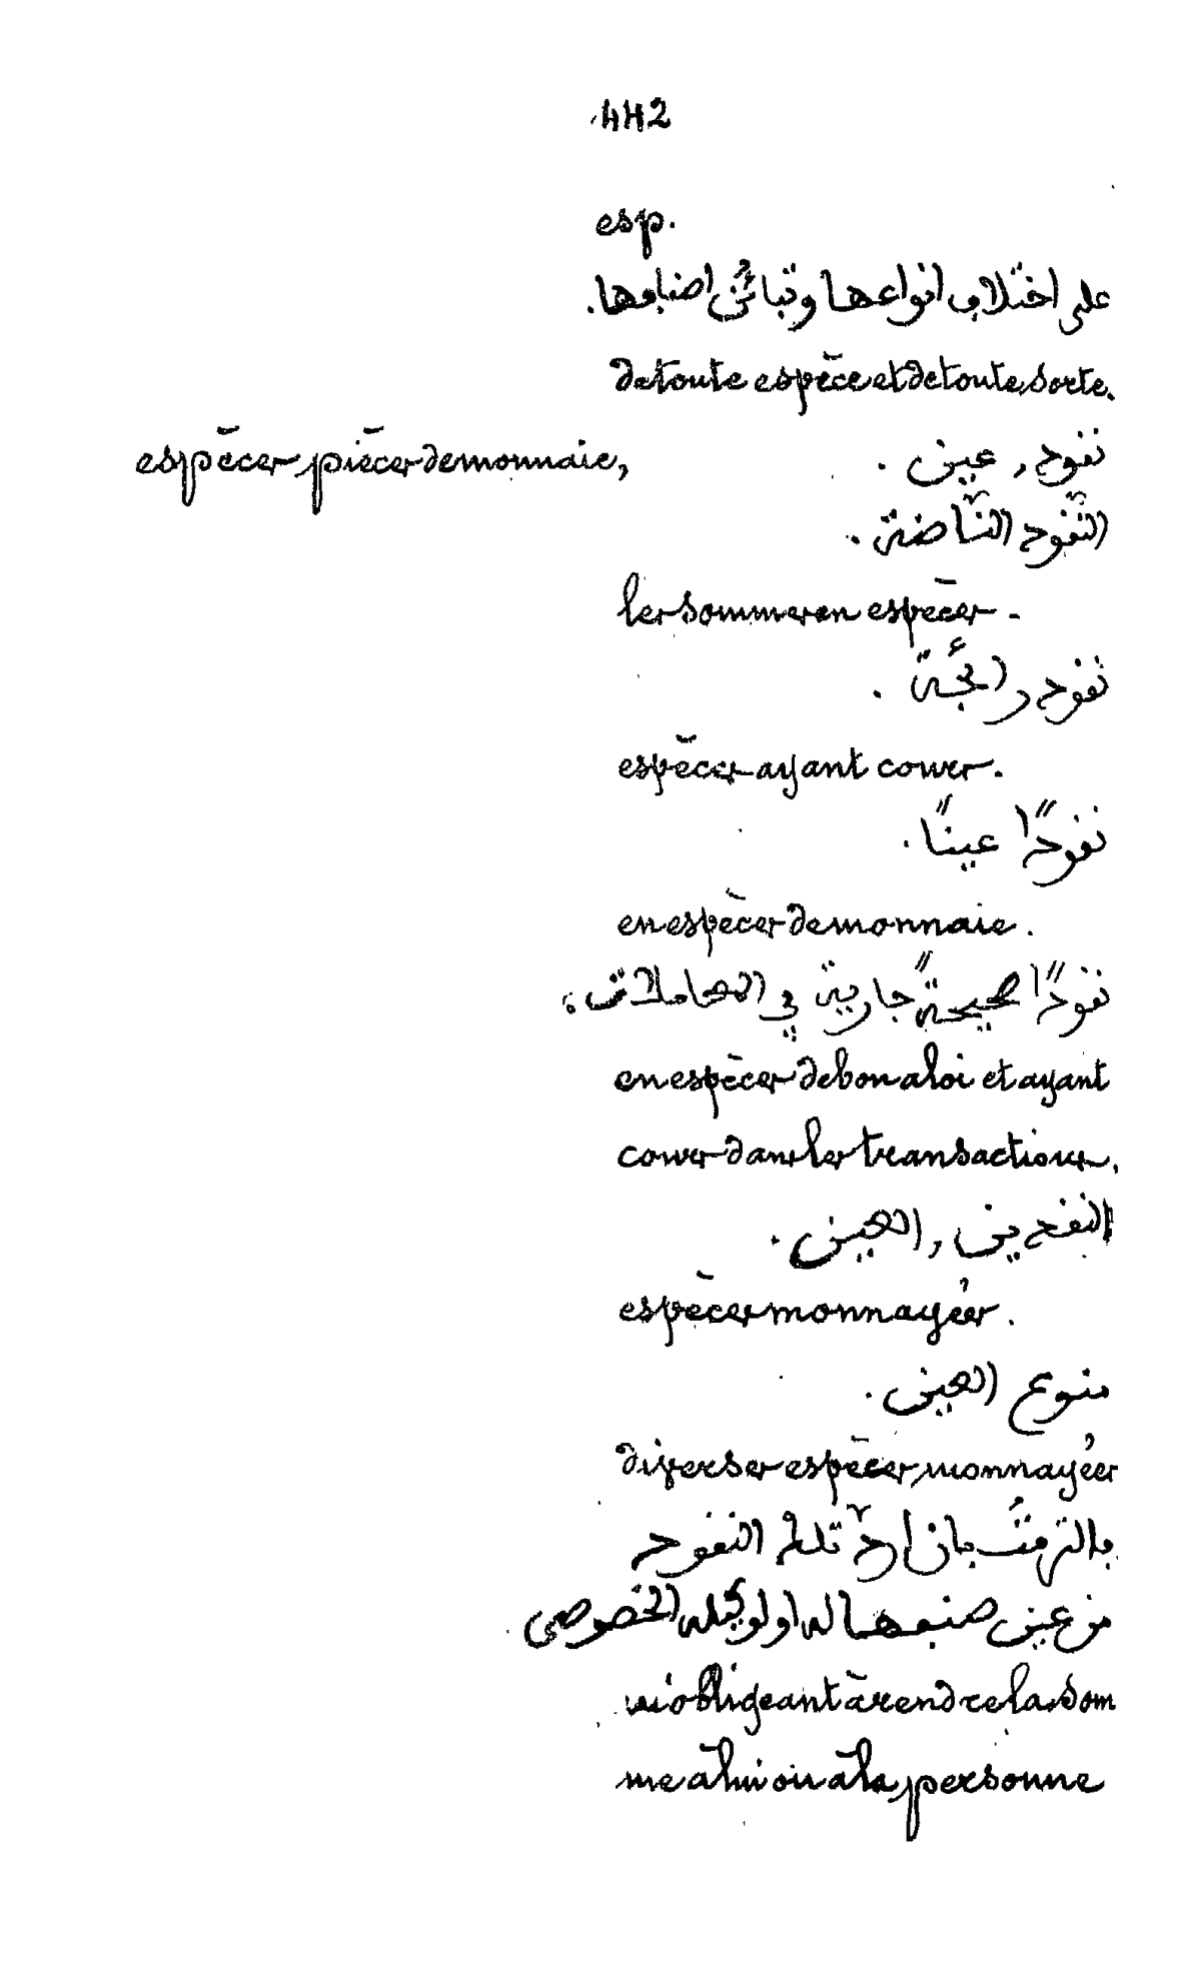 442
esp.
على اختلاف انواعها وتبائن اصنافها.
de toute espèce et de toute sorte.
espèces, pièces de monnaie, نقود, عين.
النّقود النّاضة.
les sommes en espèces.
نقود رائجة.
espèces ayant cours.
نقودًا عينًا.
en espèces de monnaie.
نقودًا صحيحةً جارية في المعاملات،
en espèces de bon aloi et ayant
cours dans les transactions.
النقدين, العين.
espèces monnayées.
منوع العين.
diverses espèces monnayées
بالتزمتُ بان اردّ تلك النقود
من عين صنفها له او لوكيله الخصوصي
m'obligeant à rendre la som
me à lui ou à la personne